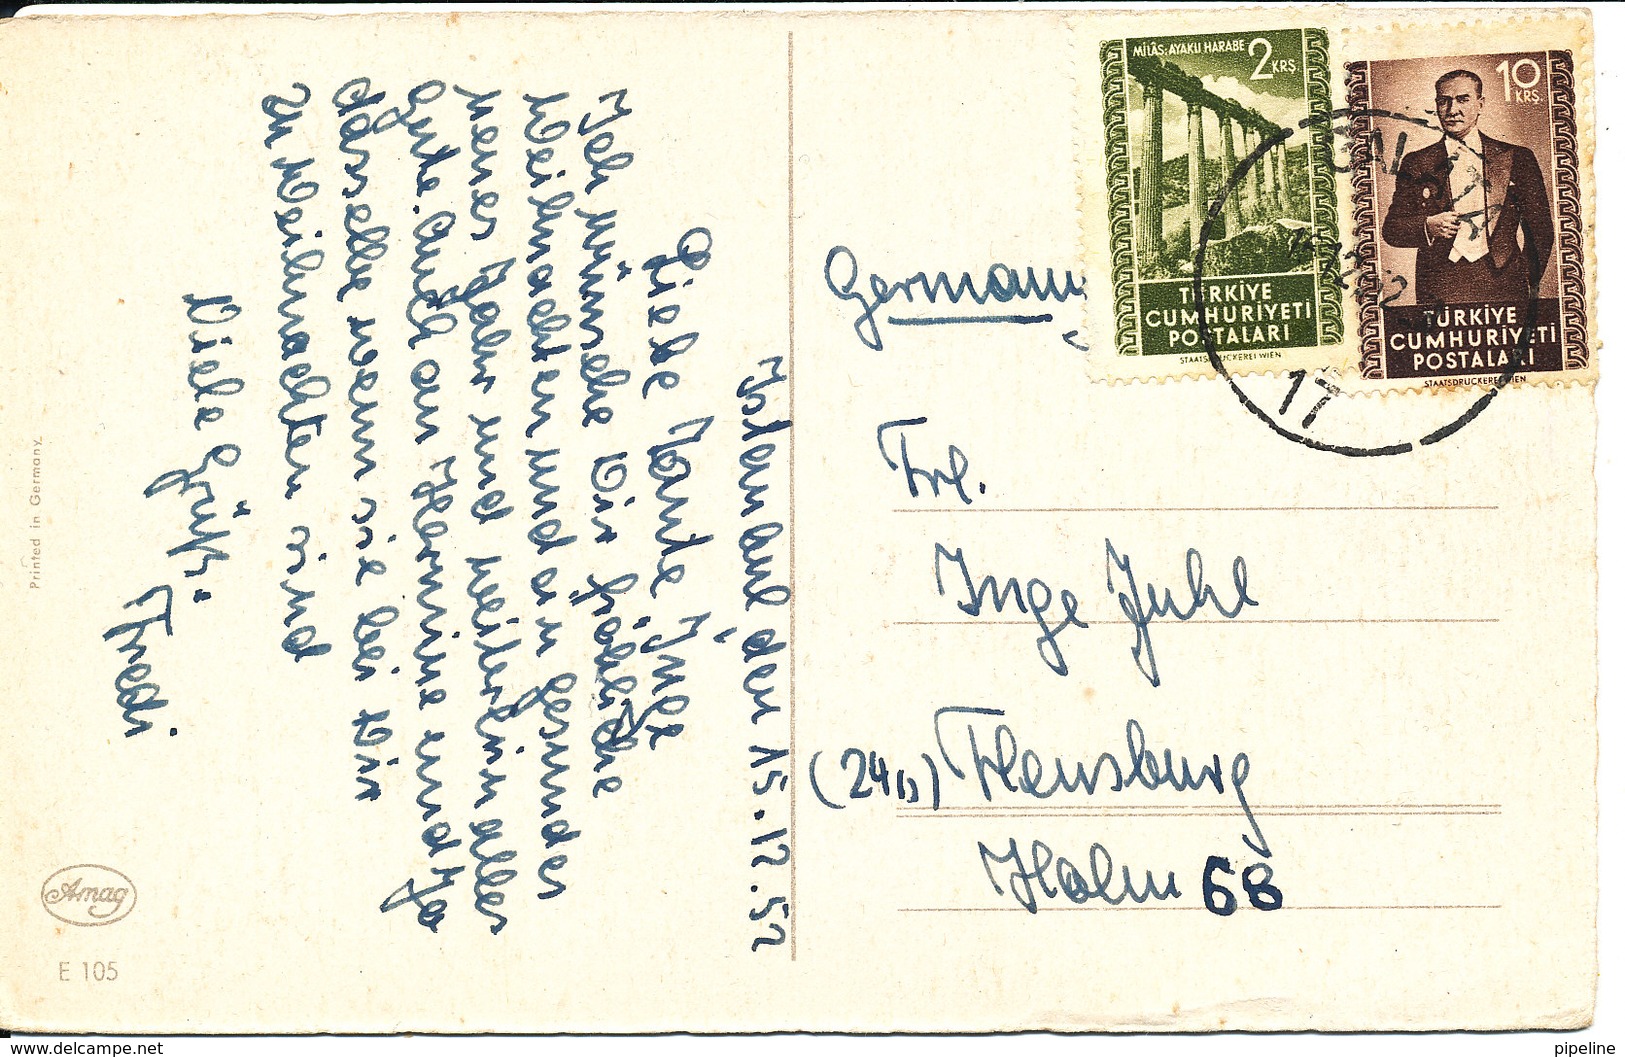 Istanbul den 15.12.52
Liebe Tante Inge
Ich wünsche Dir fröhliche
Weihnachten und ein gesundes
neues Jahr und weiterhin alles
Gute. Auch an Hermine und
dasselbe wenn sie bei Dir
zu Weihnachten sind
Viele Grüße.
Fredi
Germany
Frl.
Inge Juhl
(24b) Flensburg
Holm 68
MİLÂS: AYAKLI HARABE 2 KRŞ.
TÜRKİYE
CUMHURİYETİ
POSTALARI
STAATSDRUCKEREI WIEN
10 KRŞ.
TÜRKİYE
CUMHURİYETİ
POSTALARI
STAATSDRUCKEREI WIEN
GALATA
17
Printed in Germany
Amag
E 105
www.delcampe.net
pipeline